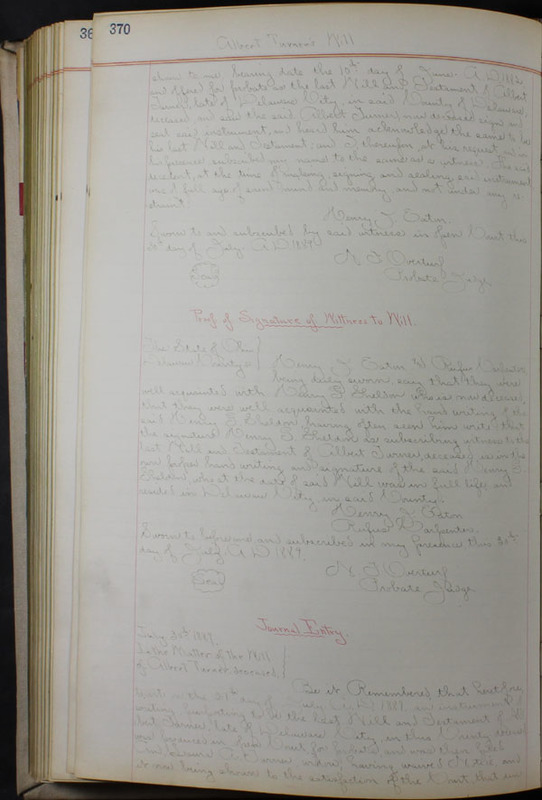 36
370
Albert Turner's Will
shown to me, bearing date the 10th day of June A.D. 188
and offered for probate as the last Will and Testament of Albert
Turner, late of Delaware City, in said County of Delaware,
deceased, and said the said Albert Turner, now deceased sign and
seal said instrument, and heard him acknowledge the same to be
his last Will and Testament; and I thereupon, at his request, and in
his presence subscribed my name to the same as a witness. The said
decedent, at the time of making, signing and sealing said instrument
was of full age, of sound mind and memory, and not under any re-
straint.
Henry J. Eaton.
Sworn to and subscribed by said witness in open Court this
day of July A.D. 1889.
N. F. Overturf
Seal
Probate Judge
Proof of Signature of Witness to Will.
The State of Ohio
Delaware County ss
Henry J. Eaton & Rufus Carpenter
being duly sworn, say that they were
well acquainted with Henry S. Sheldon who is now deceased,
that they were well acquainted with the hand writing of the
said Henry S. Sheldon, having often seen him write; that
the signature Henry S. Sheldon as subscribing witness to the
last Will and Testament of Albert Turner, deceased, is in the
own proper hand writing and signature of the said Henry S.
Sheldon, who at the date of said Will was in full life, and
resided in Delaware City, in said County.
Henry J. Eaton
Rufus Carpenter.
Sworn to before me and subscribed in my presence this 30th
day of July A.D. 1889.
N. F. Overturf
Seal
Probate Judge
Journal Entry.
July 1889.
In the Matter of the Will
of Albert Turner deceased.
Be it Remembered that heretofore
to wit: on the day of July A.D. 1889 an instrument of
writing purporting to be the last Will and Testament of Al-
bert Turner, late of Delaware City, in this County, deceased
was produced in open Court for probate and was then filed
And Turner widow having waived Notice, and
it now being shown to the satisfaction of the Court that